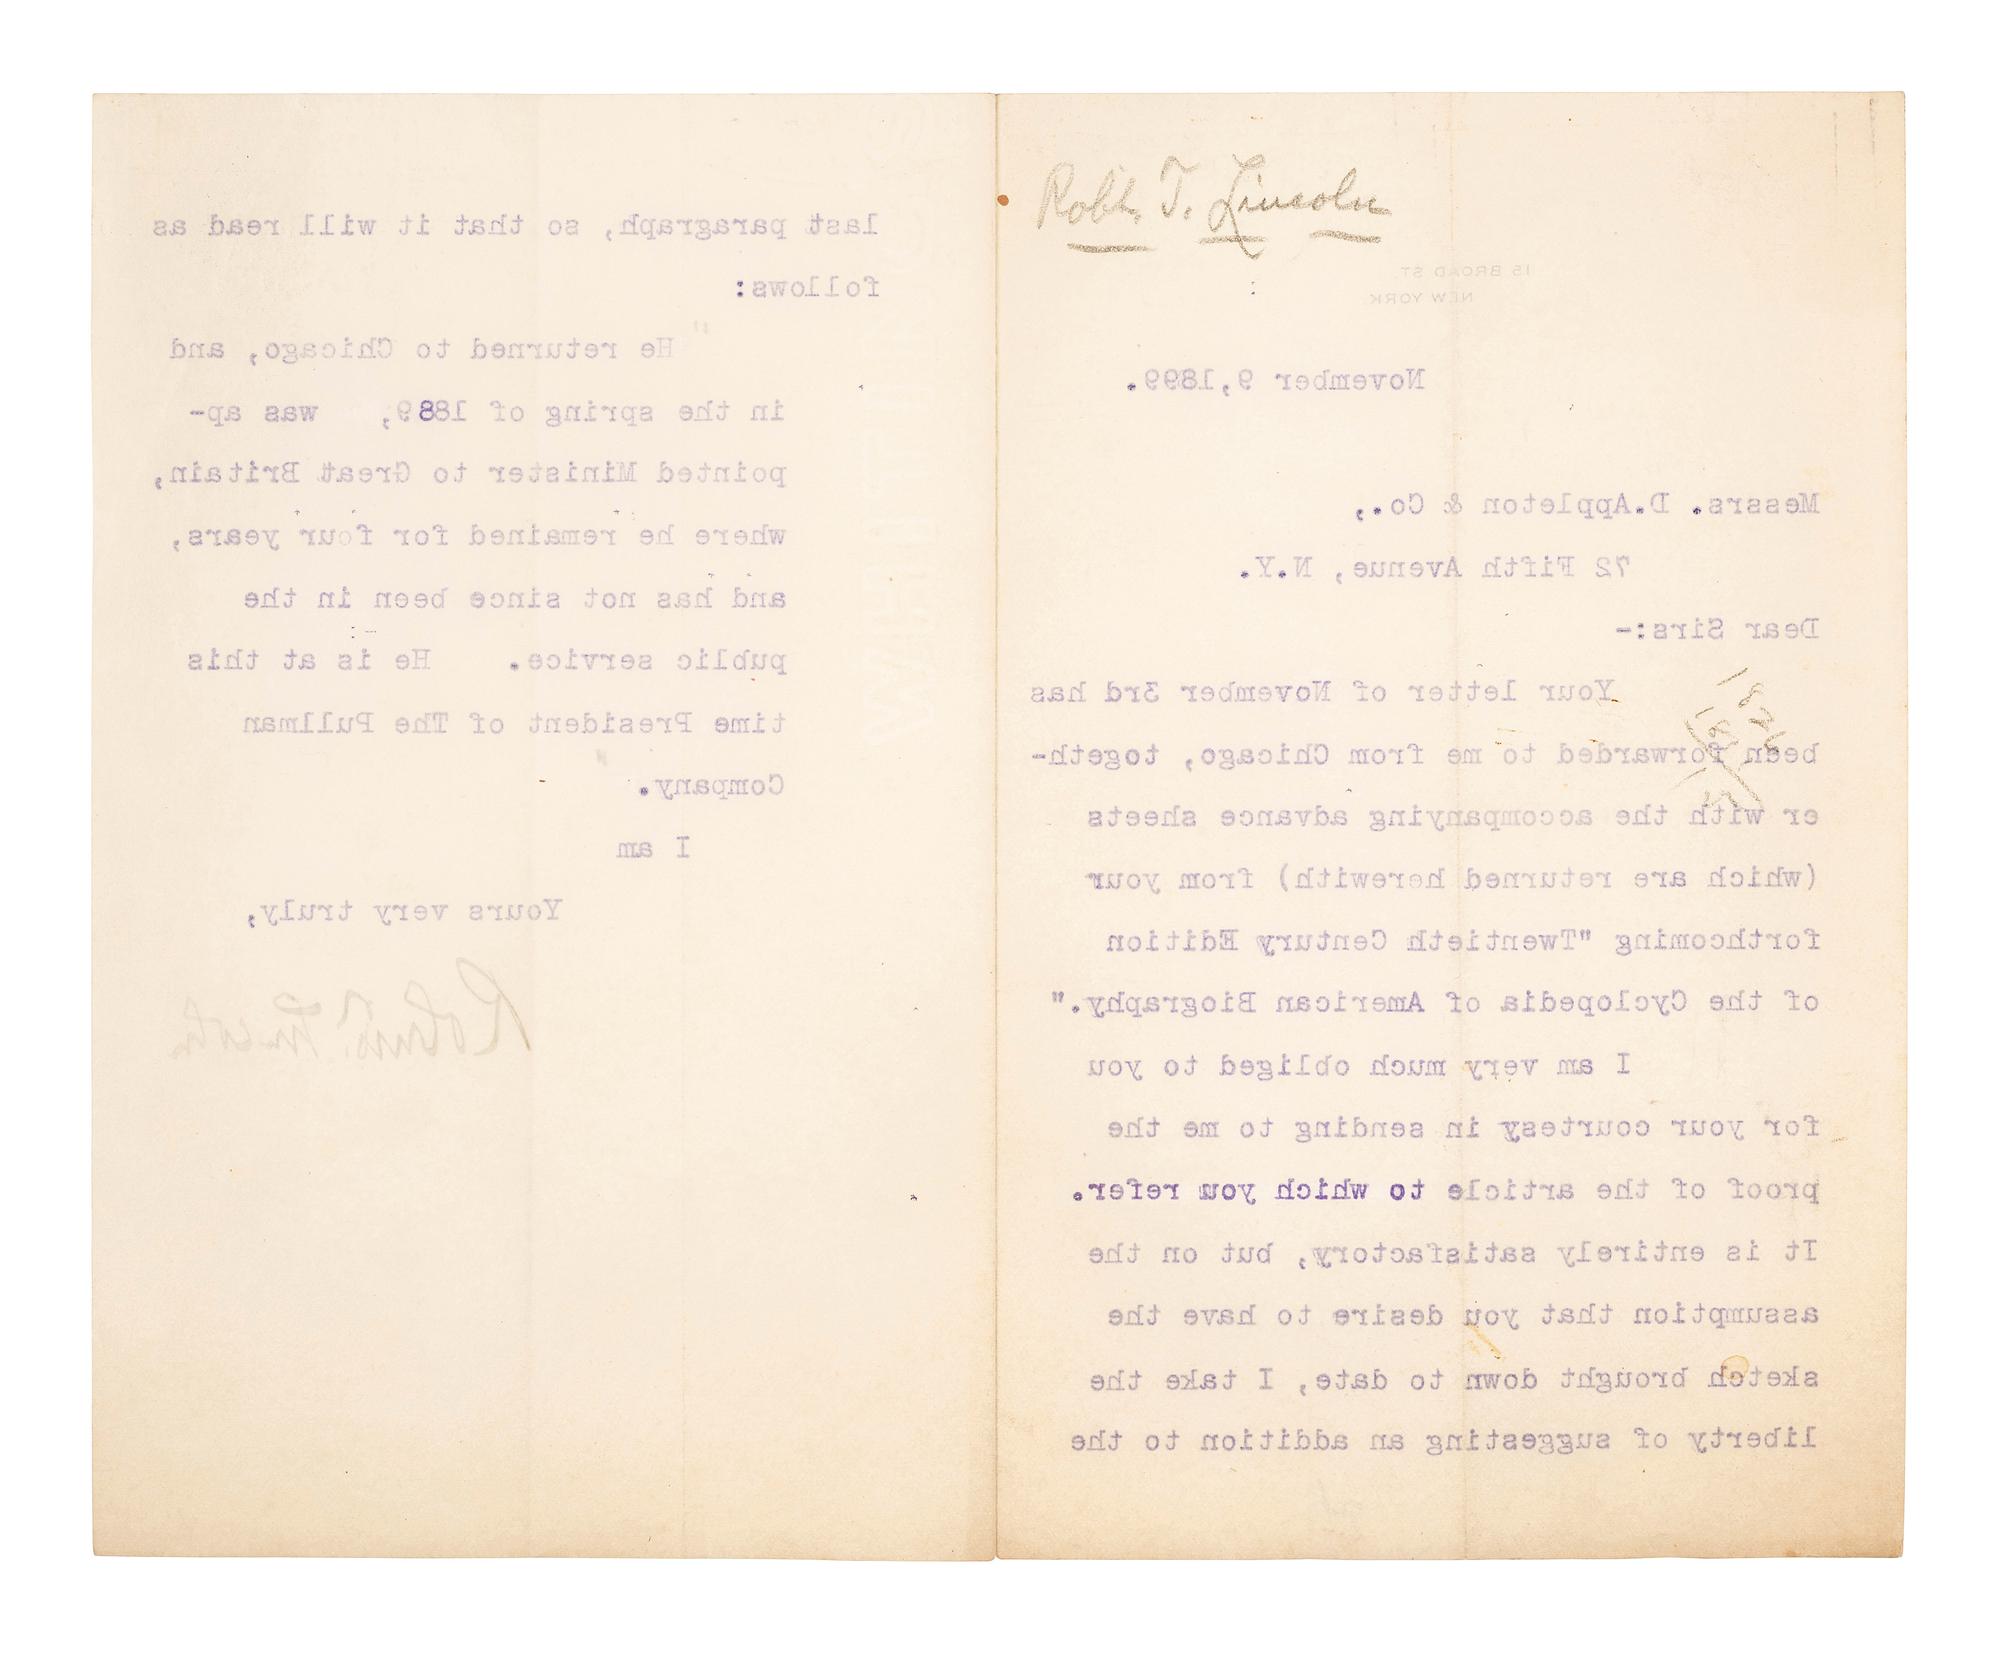 Robt. T. Lincoln
15 BROAD ST.
NEW YORK.
November 9,1899.
Messrs. D.Appleton & Co.,
72 Fifth Avenue, N.Y.
Dear Sirs:-
Your letter of November 3rd has
been forwarded to me from Chicago, togeth-
er with the accompanying advance sheets
(which are returned herewith) from your
forthcoming "Twentieth Century Edition
of the Cyclopedia of American Biography."
I am very much obliged to you
for your courtesy in sending to me the
proof of the article to which you refer.
It is entirely satisfactory, but on the
assumption that you desire to have the
sketch brought down to date, I take the
liberty of suggesting an addition to the
last paragraph, so that it will read as
follows:
"He returned to Chicago, and
in the spring of 1889, was ap-
pointed Minister to Great Britain,
where he remained for four years,
and has not since been in the
public service. He is at this
time President of The Pullman
Company."
I am
Yours very truly,
Robert T. Lincoln